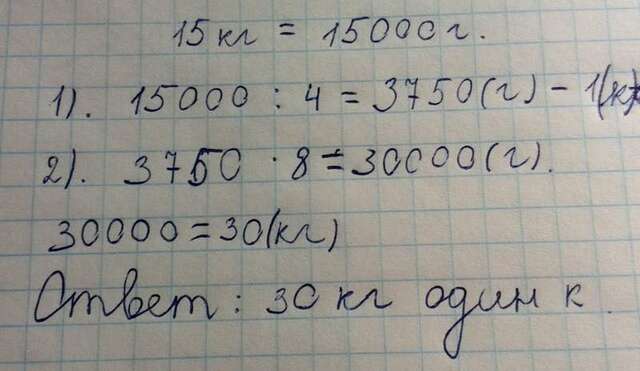 15 кг = 15000 г.
1). 15000 : 4 = 3750 (г) - 1(к
2). 3750 · 8 = 30000 (г).
30000 = 30 (кг)
Ответ : 30 кг один к.